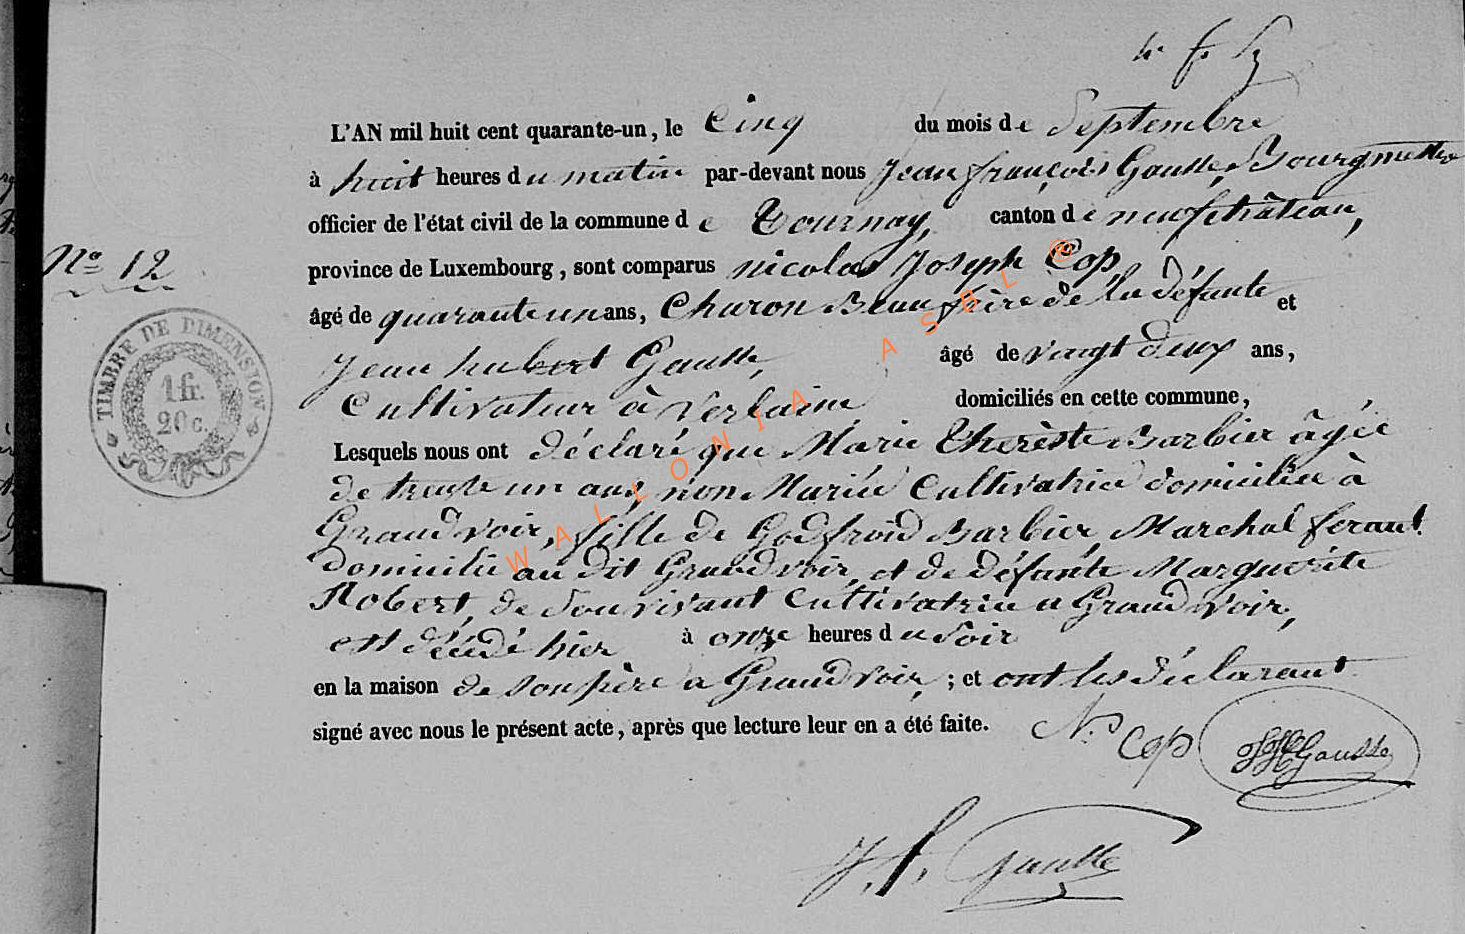 4e f. 5
L'AN mil huit cent quarante-un, le Cinq du mois de Septembre
à huit heures du matin par-devant nous Jean françois Gausse, Bourgmestre
officier de l'état civil de la commune de Tournay, canton de neufchâteau,
N° 12
province de Luxembourg, sont comparus nicolas Joseph Cop
âgé de quarante un ans, Charon Beau frère de la défunte et
Jean hubert Gausse, âgé de vingt deux ans,
Cultivateur à Verlaine domiciliés en cette commune,
Lesquels nous ont déclaré que Marie Therèse Barbier âgée
de trente un ans, non Mariée Cultivatrice domiciliée à
Grandvoir, fille de Godfroid Barbier Marchal ferant
domicilié au dit Grandvoir, et de défunte Marguerite
Robert, de Son vivant Cultivatrice a Grandvoir,
est décédé hier à onze heures du Soir
en la maison de son père a Grandvoir, ; et ont les déclarant
signé avec nous le présent acte, après que lecture leur en a été faite.
N. Cop JHGausse
J. f. Gausse
TIMBRE DE DIMENSION
1 fr.
20 c.
WALLONIA ASBL ©